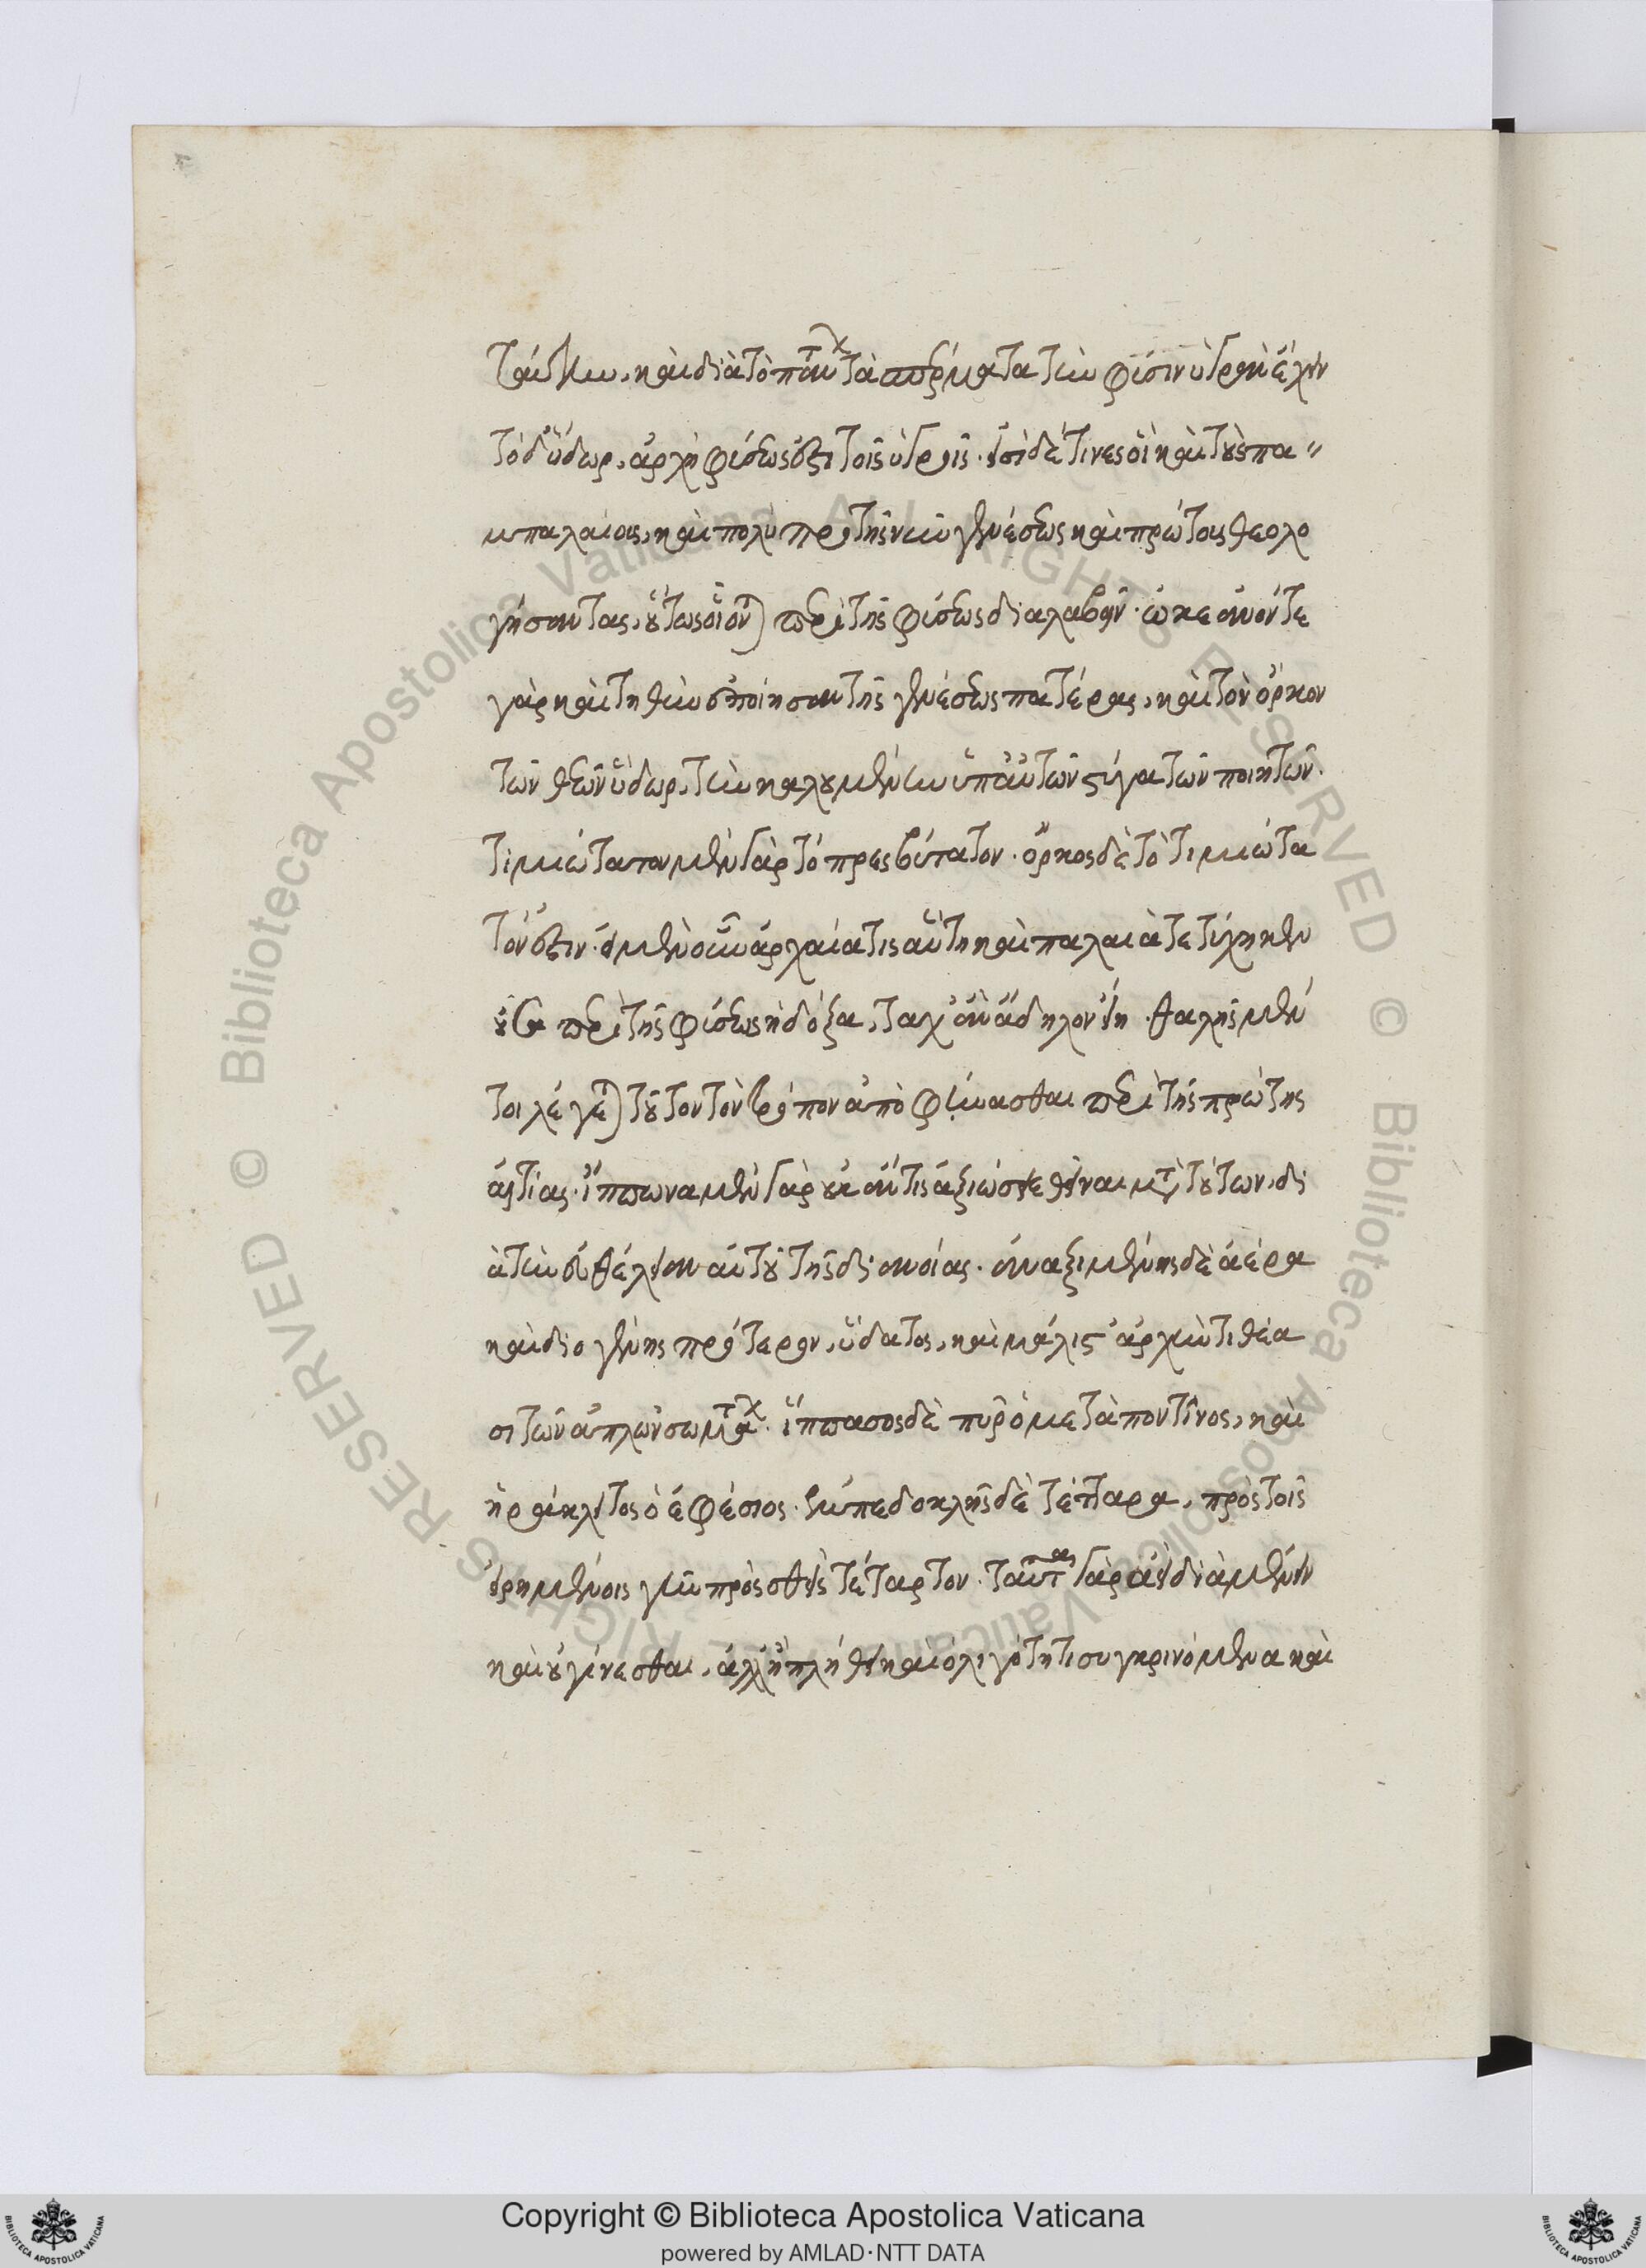 ταύτην, καὶ διὰ τὸ πάντων τὰ σπέρματα τὴν φύσιν ὑγρὰν ἔχειν
τὸ δ' ὕδωρ, ἀρχὴ φύσεως ἐστι τοῖς ὑγροῖς. εἰσὶ δέ τινες οἳ καὶ τοὺς πα
μπαλαίους, καὶ πολὺ πρὸ τῆς νῦν γενέσεως καὶ πρώτους θεολο
γήσαντας, οὕτως οἴονται περὶ τῆς φύσεως διαλαβεῖν. ὠκεανόν τε
γὰρ καὶ τηθὺν ἐποίησαν τῆς γενέσεως πατέρας, καὶ τὸν ὅρκον
τῶν θεῶν ὕδωρ, τὴν καλουμένην ὑπ' αὐτῶν στύγα τῶν ποιητῶν.
τιμιώτατον μὲν γὰρ τὸ πρεσβύτατον. ὅρκος δὲ τὸ τιμιώτα
τόν ἐστιν. εἰ μὲν οὖν ἀρχαία τις αὕτη καὶ παλαιὰ τετύχηκεν
οὖσα περὶ τῆς φύσεως ἡ δόξα, τάχ' ἂν ἄδηλον εἴη. θαλῆς μέν
τοι λέγεται τοῦτον τὸν τρόπον ἀποφήνασθαι περὶ τῆς πρώτης
αἰτίας. ἵππωνα μὲν γὰρ οὐκ ἄν τις ἀξιώσειε θεῖναι μετὰ τούτων, δι
ὰ τὴν εὐτέλειαν αὐτοῦ τῆς διανοίας. ἀναξιμένης δὲ ἀέρα
καὶ διογένης πρότερον, ὕδατος, καὶ μάλιστ' ἀρχὴν τιθέα
σι τῶν ἁπλῶν σωμάτων. ἵππασος δὲ πῦρ ὁ μεταποντῖνος, καὶ
ἡράκλειτος ὁ ἐφέσιος. ἐμπεδοκλῆς δὲ τέτταρα, πρὸς τοῖς
εἰρημένοις γῆν προσθεὶς τέταρτον. ταῦτα γὰρ ἀεὶ διαμένειν
καὶ οὐ γίνεσθαι, ἀλλ' ἢ πλήθει καὶ ὀλιγότητι συγκρινόμενα καὶ
Copyright © Biblioteca Apostolica Vaticana
powered by AMLAD·NTT DATA